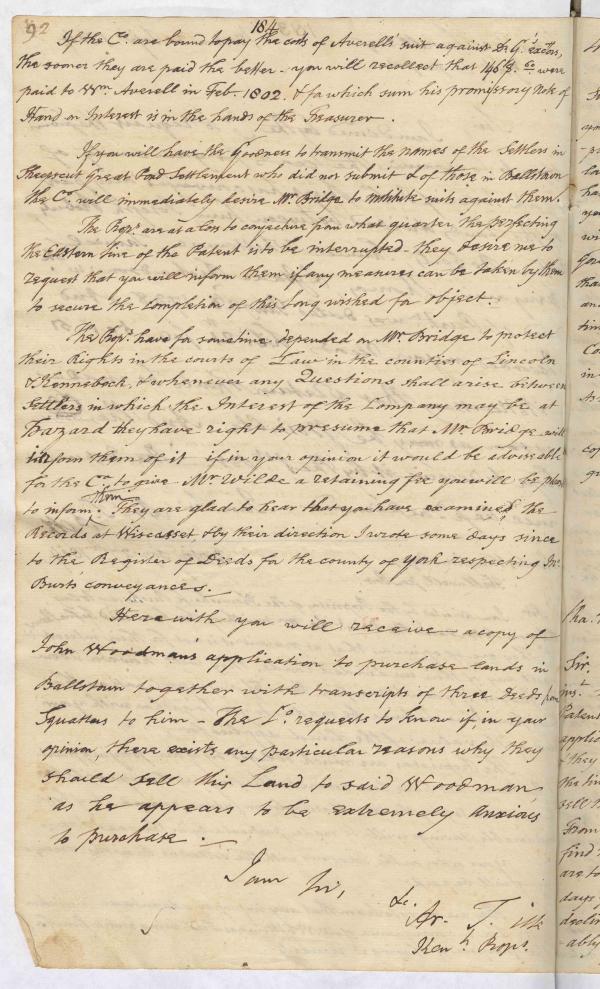 92
184
If the Co. are bound to pay the costs of Averell's suit against Dr G's exctors,
the sooner they are paid the better - you will recollect that 1468.60 were
paid to Wm. Averell in Feb. 1802. & for which sum his promissory Note of
Hand on Interest is in the hands of the Treasurer.
If you will have the Goodness to transmit the names of the Settlers in
Sheepscut Great Pond Settlement who did not submit & of those in Ballstown
the Co. will immediately desire Mr. Bridge to institute suits against them.
The Props. are at a loss to conjecture from what quarter the perfecting
the Eastern line of the Patent is to be interrupted - they desire me to
request that you will inform them if any measures can be taken by them
to secure the completion of this long wished for object.
The Props. have for sometime depended on Mr. Bridge to protect
their Rights in the courts of Law in the counties of Lincoln
& Kennebeck, & whenever any Questions shall arise between
Settlers in which the Interest of the Company may be at
hazard they have right to presume that Mr Bridge will
inform them of it if in your opinion it would be adviseable
for the Co. to give Mr Wilde a retaining fee you will be pleas
to inform them. They are glad to hear that you have examined the
Records at Wiscasset & by their direction I wrote some days since
to the Register of Deeds for the county of York respecting Jno.
Burts conveyances.
Herewith you will receive a copy of
John Woodman's application to purchase lands in
Ballstown together with transcripts of three Deeds from
Squatters to him - The Co. requests to know if, in your
opinion, there exists any particular reasons why they
should sell this Land to said Woodman
as he appears to be extremely anxious
to purchase.
I am Sir,
&c.
Ar. T.
Kenh. Props.